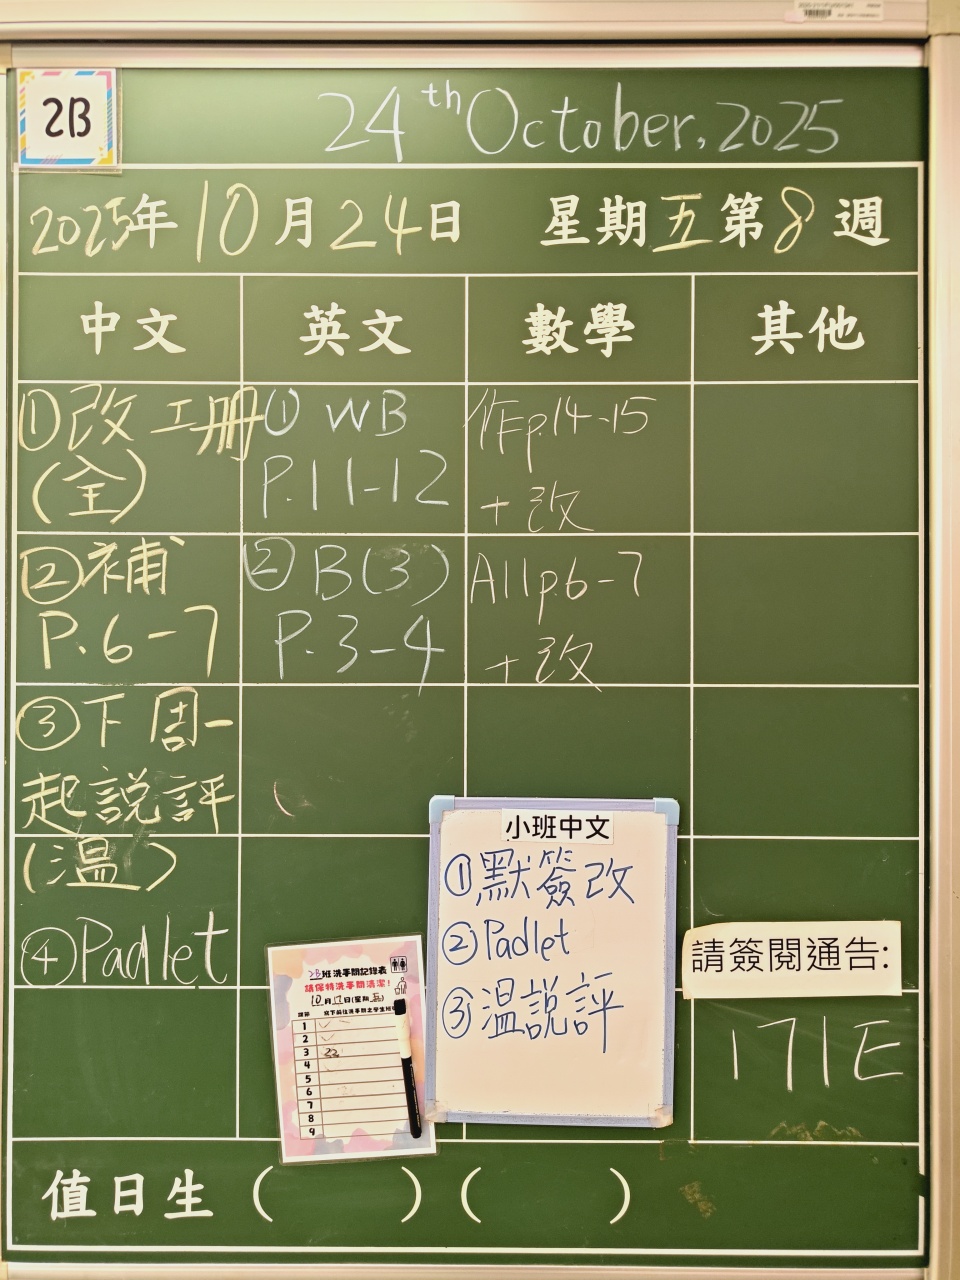 2B
24th October, 2025
2025年10月24日 星期五第8週
中文 英文 數學 其他
①改工冊
(全)
②補
P.6-7
③下周一
起說評
(溫)
④Padlet
① WB
P.11-12
② B(3)
P.3-4
作p.14-15
+改
A11p.6-7
+改
小班中文
①默簽改
②Padlet
③溫說評
請簽閱通告:
171E
2B班洗手間記錄表
請保持洗手間清潔!
10月17日(星期五)
1
2
3 22
4
5
6
7
8
9
值日生 ( ) ( )